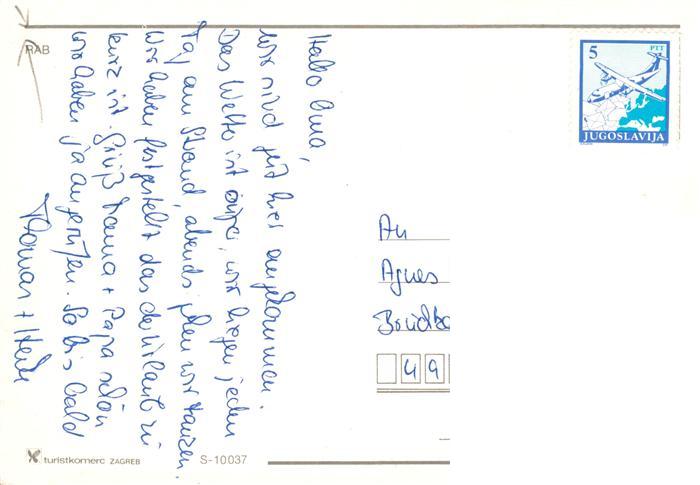 RAB
5
PTT
JUGOSLAVIJA
Hallo Oma,
wir sind jetzt hier angekommen.
Das Wetter ist wir liegen jeden
Tag am Strand, abends gehen wir tanzen.
Wir haben festgestellt das der Urlaub zu
kurz ist. Grüß Mama + Papa schön
wir haben ja angerufen. So bis bald
Thomas + Heidi
An
Agnes
49
turistkomerc ZAGREB
S-10037